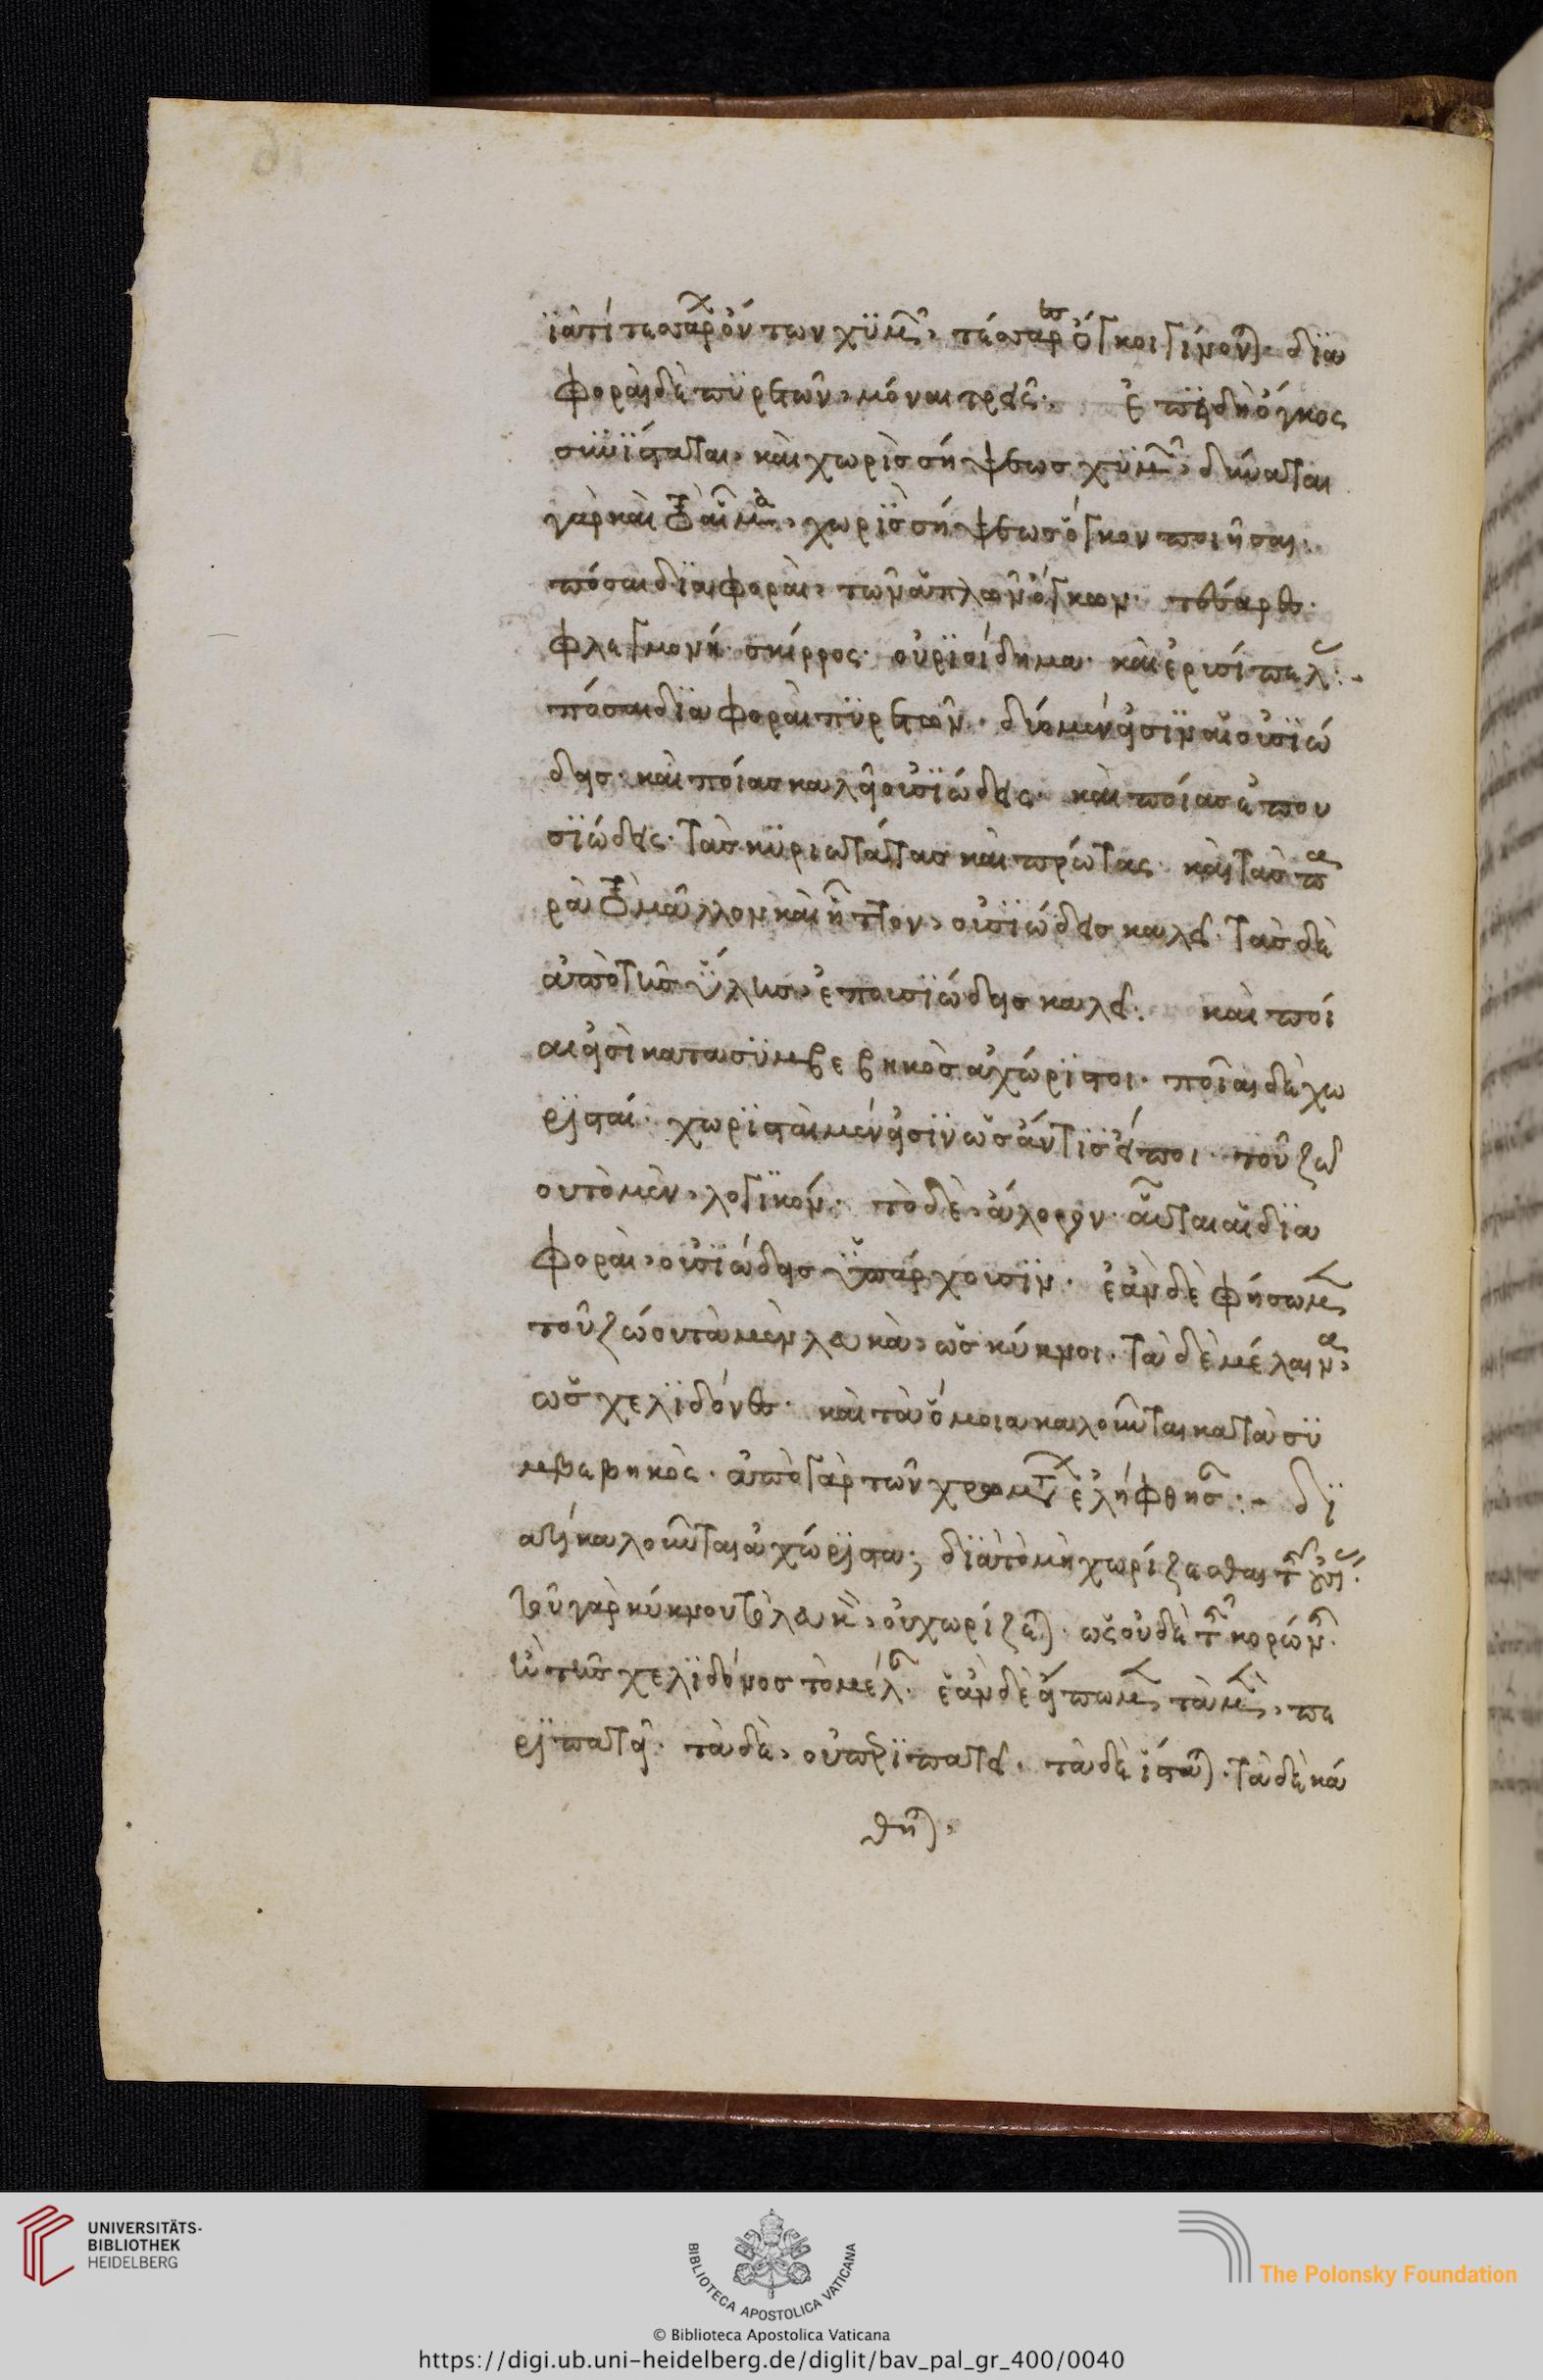 ϊατί τεσσάρων ὄντων χϋμῶν, τέσσαρες ὄγκοι γίνονται· δϊα
φοραὶ δὲ πϋρετῶν, μόναι τρεῖς· ἐπϊδὴ ὄγκος
σϋνΐσταται, καὶ χωρὶς σήψεως χϋμοῦ, δύναται
γὰρ καὶ τὸ αἷμα, χωρὶς σήψεως ὄγκον ποιῆσαι·
πόσαι δϊαφοραὶ, τῶν ἁπλῶν ὄγκων· τέσσαρες·
φλεγμονή· σκίρρος· οἴδημα· καὶ ἐρισίπελας:-
πόσαι δϊαφοραὶ πϋρετῶν· δύο μέν εἰσϊν αἱ οὐσϊώ
δεις· καὶ ποίας καλεῖ οὐσϊώδεις· καὶ ποίας ἐπου
σϊώδεις· τὰς κϋριωτάτας καὶ πρώτας· καὶ τὰς πα
ρὰ τὸ μᾶλλον καὶ ἧττον, οὐσϊώδεις καλεῖ· τὰς δὲ
ἀπὸ τῆς ὕλης, ἐπουσϊώδεις καλεῖ· καὶ ποί
αι εἰσὶ κατασϋμβεβηκὸς ἀχώρϊστοι· ποῖαι δὲ χω
ρϊσταί· χωρϊσταὶ μέν εἰσϊν ὡς ἄν τις εἴποι· τοῦ ζώ
ου τὸ μὲν, λογϊκόν· τὸ δὲ, ἄλογον· αὗται αἱ δϊα
φοραὶ, οὐσϊώδεις ὑπάρχουσϊν· ἐὰν δὲ φήσωμεν
τοῦ ζώου τὰ μὲν λευκὰ, ὡς κύκνοι· τὰ δὲ μέλαινα,
ὡς χελϊδόνες· καὶ τὰ ὅμοια καλοῦνται κατὰ σϋ
μβεβηκὸς· ἀπὸ γὰρ τῶν χρωμάτων ἐλήφθησαν:- δϊ
ατί καλοῦνται ἀχώρϊστα; δϊὰ τὸ μὴ χωρίζεσθαι τῆς
τοῦ γὰρ κύκνου τὸ λευκὸν, οὐ χωρίζεται· ὡς οὐδὲ τῆς κορώνης·
ἢ τῆς χελϊδόνος τὸ μέλαν· ἐὰν δὲ εἴπωμεν τὰ μὲν, πε
ρϊπατεῖ· τὰ δὲ, οὐ περϊπατεῖ· τὰ δὲ ΐσταται· τὰ δὲ κά
θηται·
UNIVERSITÄTS-
BIBLIOTHEK
HEIDELBERG
BIBLIOTECA APOSTOLICA VATICANA
The Polonsky Foundation
© Biblioteca Apostolica Vaticana
https://digi.ub.uni-heidelberg.de/diglit/bav_pal_gr_400/0040